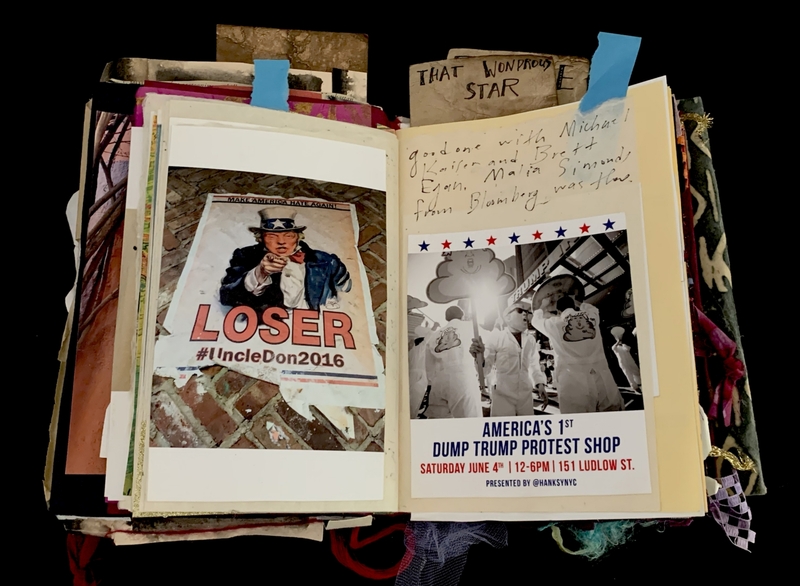 THAT WONDROUS
STAR E
MAKE AMERICA HATE AGAIN!
LOSER
#UncleDon2016
good one with Michael
Kaiser and Brett
Egan. Malia Simonds
from Blumberg was there
AMERICA'S 1ST
DUMP TRUMP PROTEST SHOP
SATURDAY JUNE 4TH | 12-6PM | 151 LUDLOW ST.
PRESENTED BY @HANKSYNYC